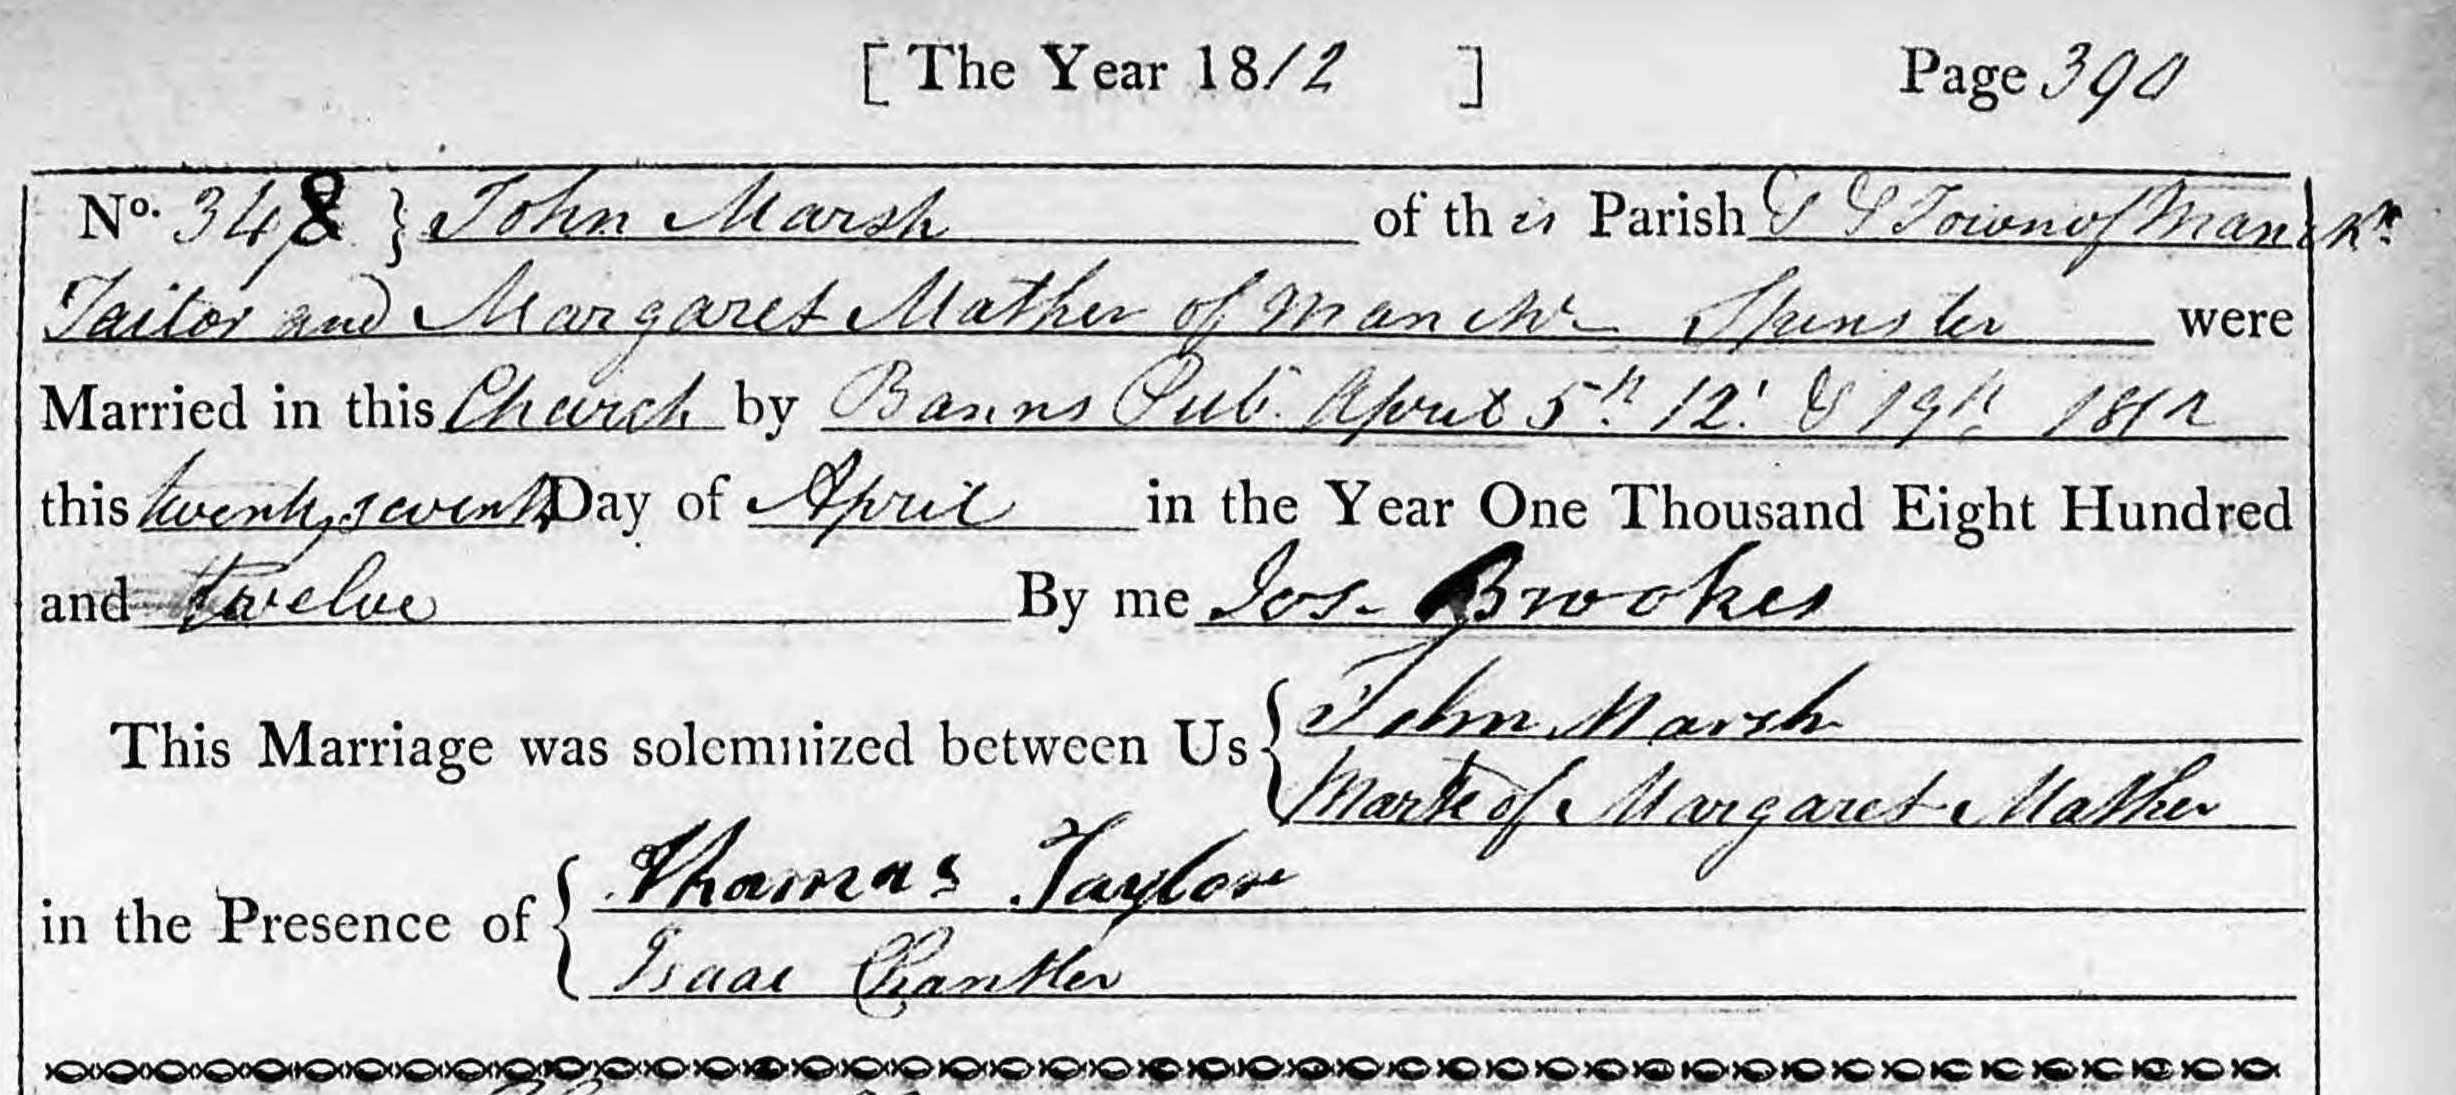 [ The Year 1812 ] Page 390
No. 348 } John Marsh of this Parish & Town of Manchr
Tailor and Margaret Mather of Manchr Spinster were
Married in this Church by Banns Pub. April 5th 12. & 19th 1812
this twenty seventh Day of April in the Year One Thousand Eight Hundred
and twelve By me Jos. Brookes
This Marriage was solemnized between Us { John Marsh
Mark of Margaret Mather
in the Presence of { Thomas Taylor
Isaac Chantler